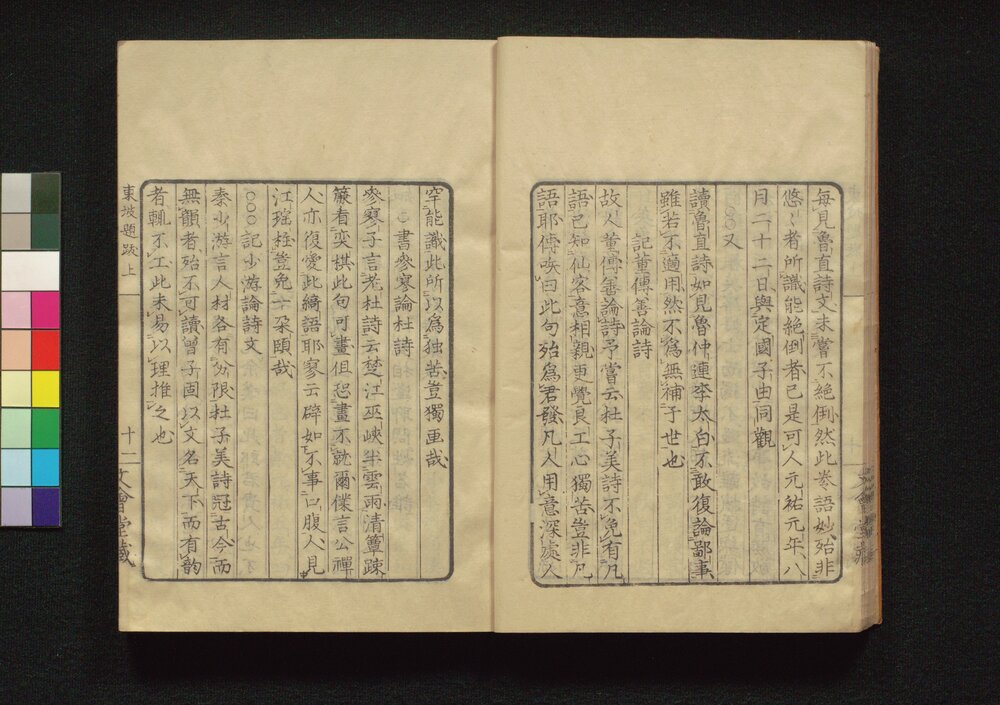 每見魯直詩文未嘗不絕倒然此卷語妙殆非
悠〻者所識能絕倒者已是可人元祐元年八
月二十二日與定國子由同觀
又
讀魯直詩如見魯仲連李太白不敢復論鄙事
雖若不適用然不爲無補于世也
記董傳善論詩
故人董傳善論詩予嘗云杜子美詩不免有凡
語已知仙客意相親更覺良工心獨苦豈非凡
語耶傳笑曰此句殆爲君發凡人用意深處人
罕能識此所以爲独苦豈獨画哉
書參寥論杜詩
參寥子言老杜詩云楚江巫峽半雲雨清簟疎
簾看奕棋此句可畫但恐畫不就爾僕言公禪
人亦復愛此綺語耶寥云辟如不事口腹人見
江瑶柱豈免一朶頤哉
○○○記少游論詩文
秦少游言人材各有分限杜子美詩冠古今而
無韻者殆不可讀曾子固以文名天下而有韵
者輒不工此未易以理推之也
東坡題跋上
十一
文會堂藏